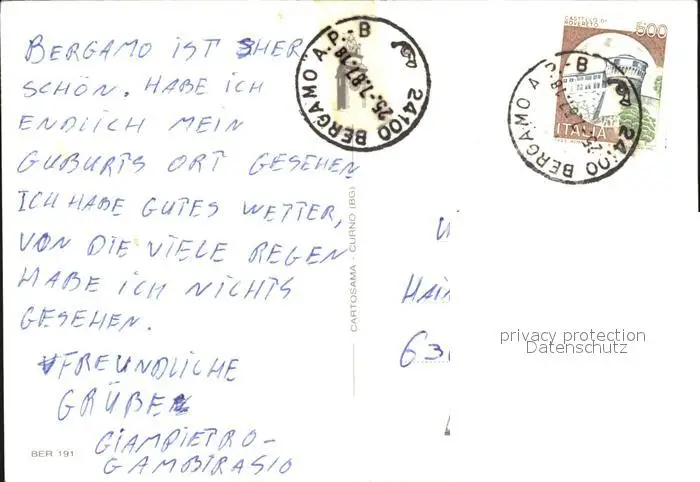 BERGAMO IST SHER
SCHÖN. HABE ICH
ENDLICH MEIN
GUBURTS ORT GESEHEN
ICH HABE GUTES WETTER,
VON DIE VIELE REGEN
HABE ICH NICHTS
GESEHEN.
FREUNDLICHE
GRÜBE
GIAMPIETRO-
GAMBIRASIO
BER 191
CARTOSAMA - CURNO (BG)
24100 BERGAMO A.P.-B
25-7.87-18
CASTELLO DI
ROVERETO
500
ITALIA
24100 BERGAMO A.P.-B
HAI
63
privacy protection
Datenschutz